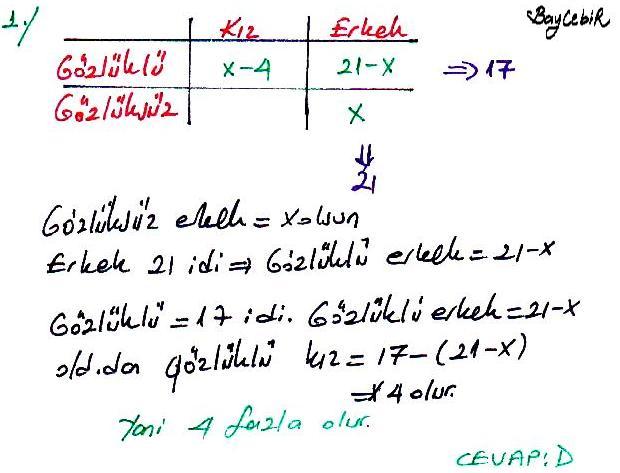 1./ BAYCEBİR
Kız Erkek
Gözlüklü x-4 21-x ⇒ 17
Gözlüksüz x
⇓
21
Gözlüksüz erkek = x olsun
Erkek 21 idi ⇒ Gözlüklü erkek = 21-x
Gözlüklü = 17 idi. Gözlüklü erkek = 21-x
old.dan gözlüklü kız = 17-(21-x)
4 olur.
Yani 4 fazla olur.
CEVAP: D